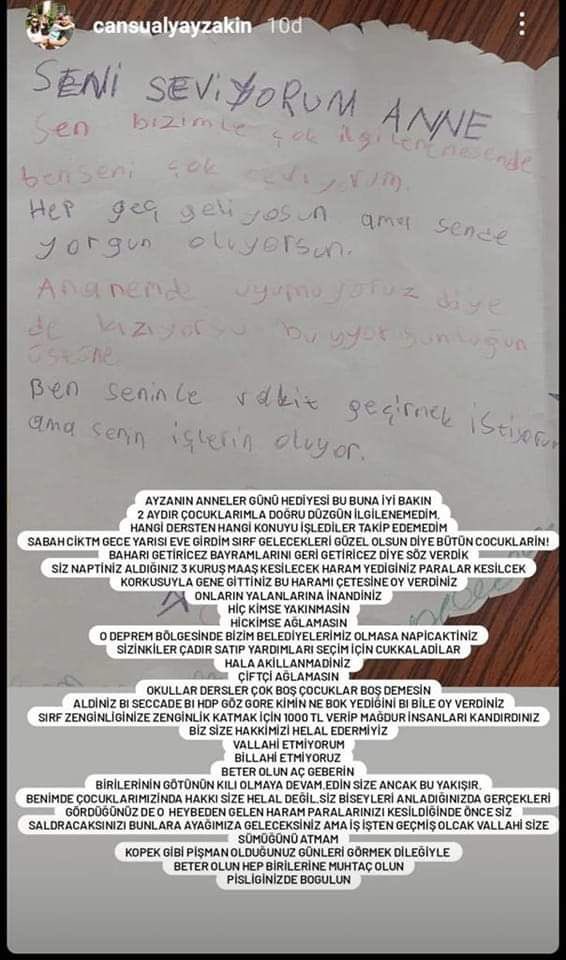 cansualyayzakin 10d
SENİ SEVİYORUM ANNE
Sen bizimle çok ilgilenemesende
ben seni çok seviyorum.
Hep geç geliyosun ama sende
yorgun oluyorsun.
Ananemde uyumuyoruz diye
de kızıyorsu bu yorgunluğun
üstüne
Ben seninle vakit geçirmek istiyorum
ama senin işlerin oluyor.
AYZANIN ANNELER GÜNÜ HEDİYESİ BU BUNA İYİ BAKIN
2 AYDIR ÇOCUKLARIMLA DOĞRU DÜZGÜN İLGİLENEMEDİM,
HANGİ DERSTEN HANGİ KONUYU İŞLEDİLER TAKİP EDEMEDİM
SABAH CİKTM GECE YARISI EVE GİRDİM SIRF GELECEKLERİ GÜZEL OLSUN DİYE BÜTÜN COCUKLARİN!
BAHARI GETİRİCEZ BAYRAMLARINI GERİ GETİRİCEZ DİYE SÖZ VERDİK
SİZ NAPTİNİZ ALDIĞINIZ 3 KURUŞ MAAŞ KESİLECEK HARAM YEDİGİNİZ PARALAR KESİLCEK
KORKUSUYLA GENE GİTTİNİZ BU HARAMİ ÇETESİNE OY VERDİNİZ
ONLARIN YALANLARINA İNANDİNİZ
HİÇ KİMSE YAKINMASİN
HİCKİMSE AĞLAMASIN
O DEPREM BÖLGESİNDE BİZİM BELEDİYELERİMİZ OLMASA NAPİCAKTİNİZ
SİZİNKİLER ÇADIR SATIP YARDIMLARI SEÇİM İÇİN CUKKALADİLAR
HALA AKİLLANMADİNİZ
ÇİFTÇİ AĞLAMASIN
OKULLAR DERSLER ÇOK BOŞ ÇOCUKLAR BOŞ DEMESİN
ALDİNİZ BI SECCADE BI HDP GÖZ GORE KİMİN NE BOK YEDİĞİNİ BI BİLE OY VERDİNİZ
SIRF ZENGİNLİGİNİZE ZENGİNLİK KATMAK İÇİN 1000 TL VERİP MAĞDUR İNSANLARI KANDIRDINIZ
BİZ SİZE HAKKİMİZİ HELAL EDERMİYİZ
VALLAHİ ETMİYORUM
BİLLAHİ ETMİYORUZ
BETER OLUN AÇ GEBERİN
BİRİLERİNİN GÖTÜNÜN KILI OLMAYA DEVAM.EDİN SİZE ANCAK BU YAKIŞIR.
BENİMDE ÇOCUKLARIMIZINDA HAKKI SİZE HELAL DEĞİL.SİZ BİSEYLERİ ANLADIĞINIZDA GERÇEKLERİ
GÖRDÜĞÜNÜZ DE O HEYBEDEN GELEN HARAM PARALARINIZI KESİLDİĞİNDE ÖNCE SİZ
SALDRACAKSINIZI BUNLARA AYAĞIMIZA GELECEKSİNİZ AMA İŞ İŞTEN GEÇMİŞ OLCAK VALLAHİ SİZE
SÜMÜĞÜNÜ ATMAM
KOPEK GİBİ PİŞMAN OLDUĞUNUZ GÜNLERİ GÖRMEK DİLEĞİYLE
BETER OLUN HEP BİRİLERİNE MUHTAÇ OLUN
PİSLİGİNİZDE BOGULUN